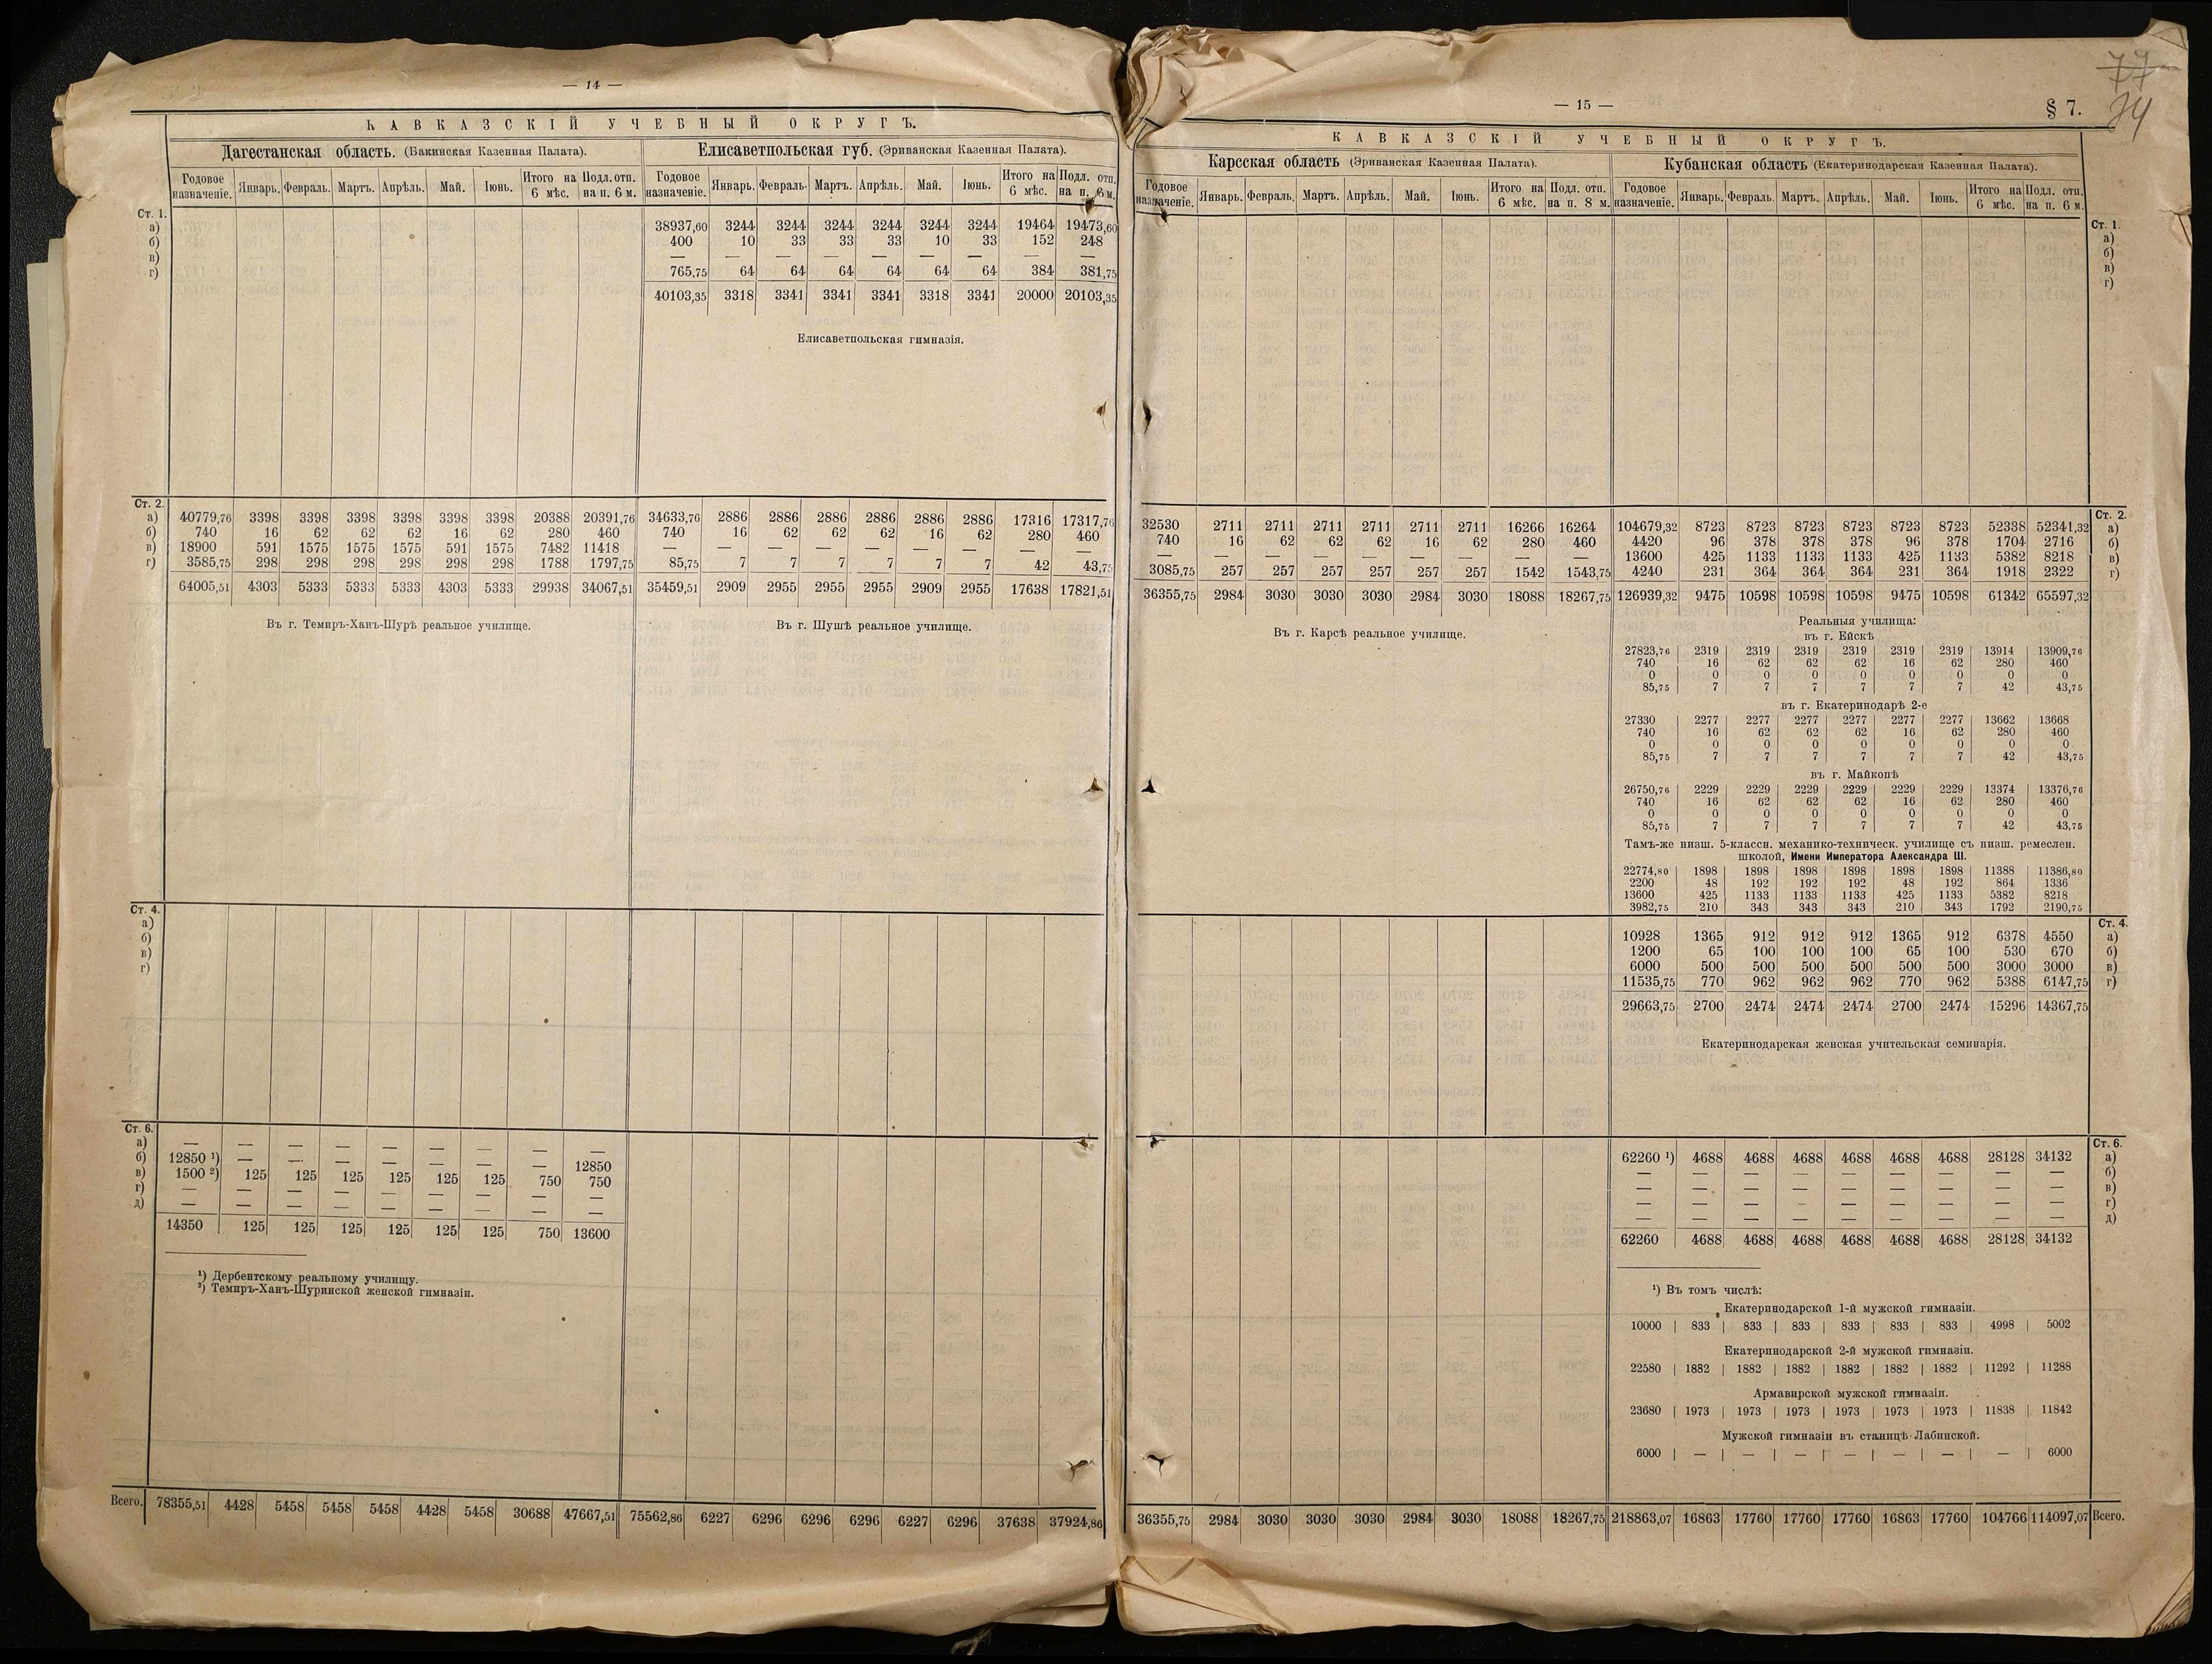 — 14 —
КАВКАЗСКІЙ УЧЕБНЫЙ ОКРУГЪ.
Дагестанская область. (Бакинская Казенная Палата). Елисаветпольская губ. (Эриванская Казенная Палата).
Годовое назначеніе. Январь. Февраль. Мартъ. Апрѣль. Май. Іюнь. Итого на 6 мѣс. Подл. отп. на п. 6 м. Годовое назначеніе. Январь. Февраль. Мартъ. Апрѣль. Май. Іюнь. Итого на 6 мѣс. Подл. отп. на п. 6 м.
Ст. 1.
а) 38937,60 3244 3244 3244 3244 3244 3244 19464 19473,60
б) 400 10 33 33 33 10 33 152 248
в) — — — — — — — — —
г) 765,75 64 64 64 64 64 64 384 381,75
40103,35 3318 3341 3341 3341 3318 3341 20000 20103,35
Елисаветпольская гимназія.
Ст. 2.
а) 40779,76 3398 3398 3398 3398 3398 3398 20388 20391,76 34633,76 2886 2886 2886 2886 2886 2886 17316 17317,76
б) 740 16 62 62 62 16 62 280 460 740 16 62 62 62 16 62 280 460
в) 18900 591 1575 1575 1575 591 1575 7482 11418 — — — — — — — — —
г) 3585,75 298 298 298 298 298 298 1788 1797,75 85,75 7 7 7 7 7 7 42 43,75
64005,51 4303 5333 5333 5333 4303 5333 29938 34067,51 35459,51 2909 2955 2955 2955 2909 2955 17638 17821,51
Въ г. Темиръ-Ханъ-Шурѣ реальное училище. Въ г. Шушѣ реальное училище.
Ст. 4.
а)
б)
в)
г)
Ст. 6.
а) — — — — — — — — —
б) 12850 ¹) — — — — — — — 12850
в) 1500 ²) 125 125 125 125 125 125 750 750
г) — — — — — — — — —
д) — — — — — — — — —
14350 125 125 125 125 125 125 750 13600
¹) Дербентскому реальному училищу.
²) Темиръ-Ханъ-Шуринской женской гимназіи.
Всего. 78355,51 4428 5458 5458 5458 4428 5458 30688 47667,51 75562,86 6227 6296 6296 6296 6227 6296 37638 37924,86
— 15 —
§ 7.
77
74
КАВКАЗСКІЙ УЧЕБНЫЙ ОКРУГЪ.
Карсская область (Эриванская Казенная Палата). Кубанская область (Екатеринодарская Казенная Палата).
Годовое назначеніе. Январь. Февраль. Мартъ. Апрѣль. Май. Іюнь. Итого на 6 мѣс. Подл. отп. на п. 8 м. Годовое назначеніе. Январь. Февраль. Мартъ. Апрѣль. Май. Іюнь. Итого на 6 мѣс. Подл. отп. на п. 6 м.
Ст. 1.
а)
б)
в)
г)
Ст. 2.
32530 2711 2711 2711 2711 2711 2711 16266 16264 104679,32 8723 8723 8723 8723 8723 8723 52338 52341,32 а)
740 16 62 62 62 16 62 280 460 4420 96 378 378 378 96 378 1704 2716 б)
— — — — — — — — — 13600 425 1133 1133 1133 425 1133 5382 8218 в)
3085,75 257 257 257 257 257 257 1542 1543,75 4240 231 364 364 364 231 364 1918 2322 г)
36355,75 2984 3030 3030 3030 2984 3030 18088 18267,75 126939,32 9475 10598 10598 10598 9475 10598 61342 65597,32
Въ г. Карсѣ реальное училище.
Реальныя училища:
въ г. Ейскѣ
27823,76 2319 2319 2319 2319 2319 2319 13914 13909,76
740 16 62 62 62 16 62 280 460
0 0 0 0 0 0 0 0 0
85,75 7 7 7 7 7 7 42 43,75
въ г. Екатеринодарѣ 2-е
27330 2277 2277 2277 2277 2277 2277 13662 13668
740 16 62 62 62 16 62 280 460
0 0 0 0 0 0 0 0 0
85,75 7 7 7 7 7 7 42 43,75
въ г. Майкопѣ
26750,76 2229 2229 2229 2229 2229 2229 13374 13376,76
740 16 62 62 62 16 62 280 460
0 0 0 0 0 0 0 0 0
85,75 7 7 7 7 7 7 42 43,75
Тамъ-же низш. 5-классн. механико-техническ. училище съ низш. ремеслен.
школой, Имени Императора Александра III.
22774,80 1898 1898 1898 1898 1898 1898 11388 11386,80
2200 48 192 192 192 48 192 864 1336
13600 425 1133 1133 1133 425 1133 5382 8218
3982,75 210 343 343 343 210 343 1792 2190,75
Ст. 4.
10928 1365 912 912 912 1365 912 6378 4550 а)
1200 65 100 100 100 65 100 530 670 б)
6000 500 500 500 500 500 500 3000 3000 в)
11535,75 770 962 962 962 770 962 5388 6147,75 г)
29663,75 2700 2474 2474 2474 2700 2474 15296 14367,75
Екатеринодарская женская учительская семинарія.
Ст. 6.
62260 ¹) 4688 4688 4688 4688 4688 4688 28128 34132 а)
— — — — — — — — — б)
— — — — — — — — — в)
— — — — — — — — — г)
— — — — — — — — — д)
62260 4688 4688 4688 4688 4688 4688 28128 34132
¹) Въ томъ числѣ:
Екатеринодарской 1-й мужской гимназіи.
10000 | 833 | 833 | 833 | 833 | 833 | 833 | 4998 | 5002
Екатеринодарской 2-й мужской гимназіи.
22580 | 1882 | 1882 | 1882 | 1882 | 1882 | 1882 | 11292 | 11288
Армавирской мужской гимназіи.
23680 | 1973 | 1973 | 1973 | 1973 | 1973 | 1973 | 11838 | 11842
Мужской гимназіи въ станицѣ Лабинской.
6000 | — | — | — | — | — | — | — | 6000
36355,75 2984 3030 3030 3030 2984 3030 18088 18267,75 218863,07 16863 17760 17760 17760 16863 17760 104766 114097,07 Всего.